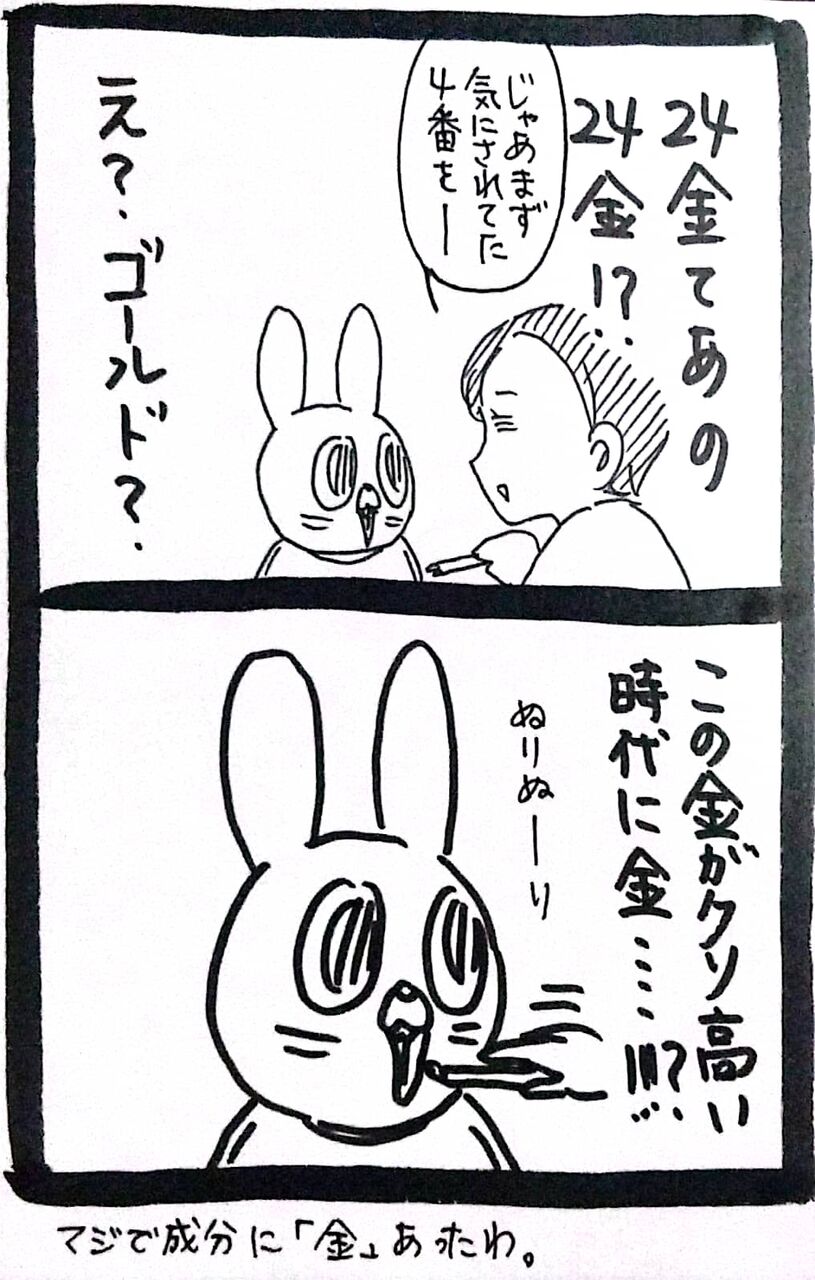 24金てあの
24金!?
じゃあまず
気にされてた
4番をー
え?ゴールド?
この金がクソ高い
時代に金……!!!?
ぬりぬーり
マジで成分に「金」あったわ。